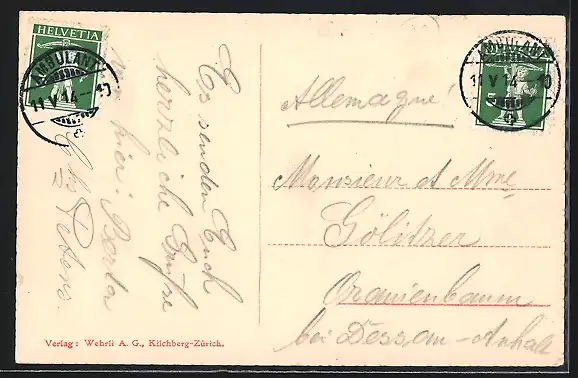 HELVETIA
AMBULANT
11.V.14—10
AMBULANT
11.V.14—10
5
Es senden Euch
herzliche Grüße
von hier: Berta
Petons.
Allemagne!
Monsieur et Mme
Gölitzer
Oranienbaum
bei Dessau-Anhalt
Verlag: Wehrli A. G., Kilchberg-Zürich.